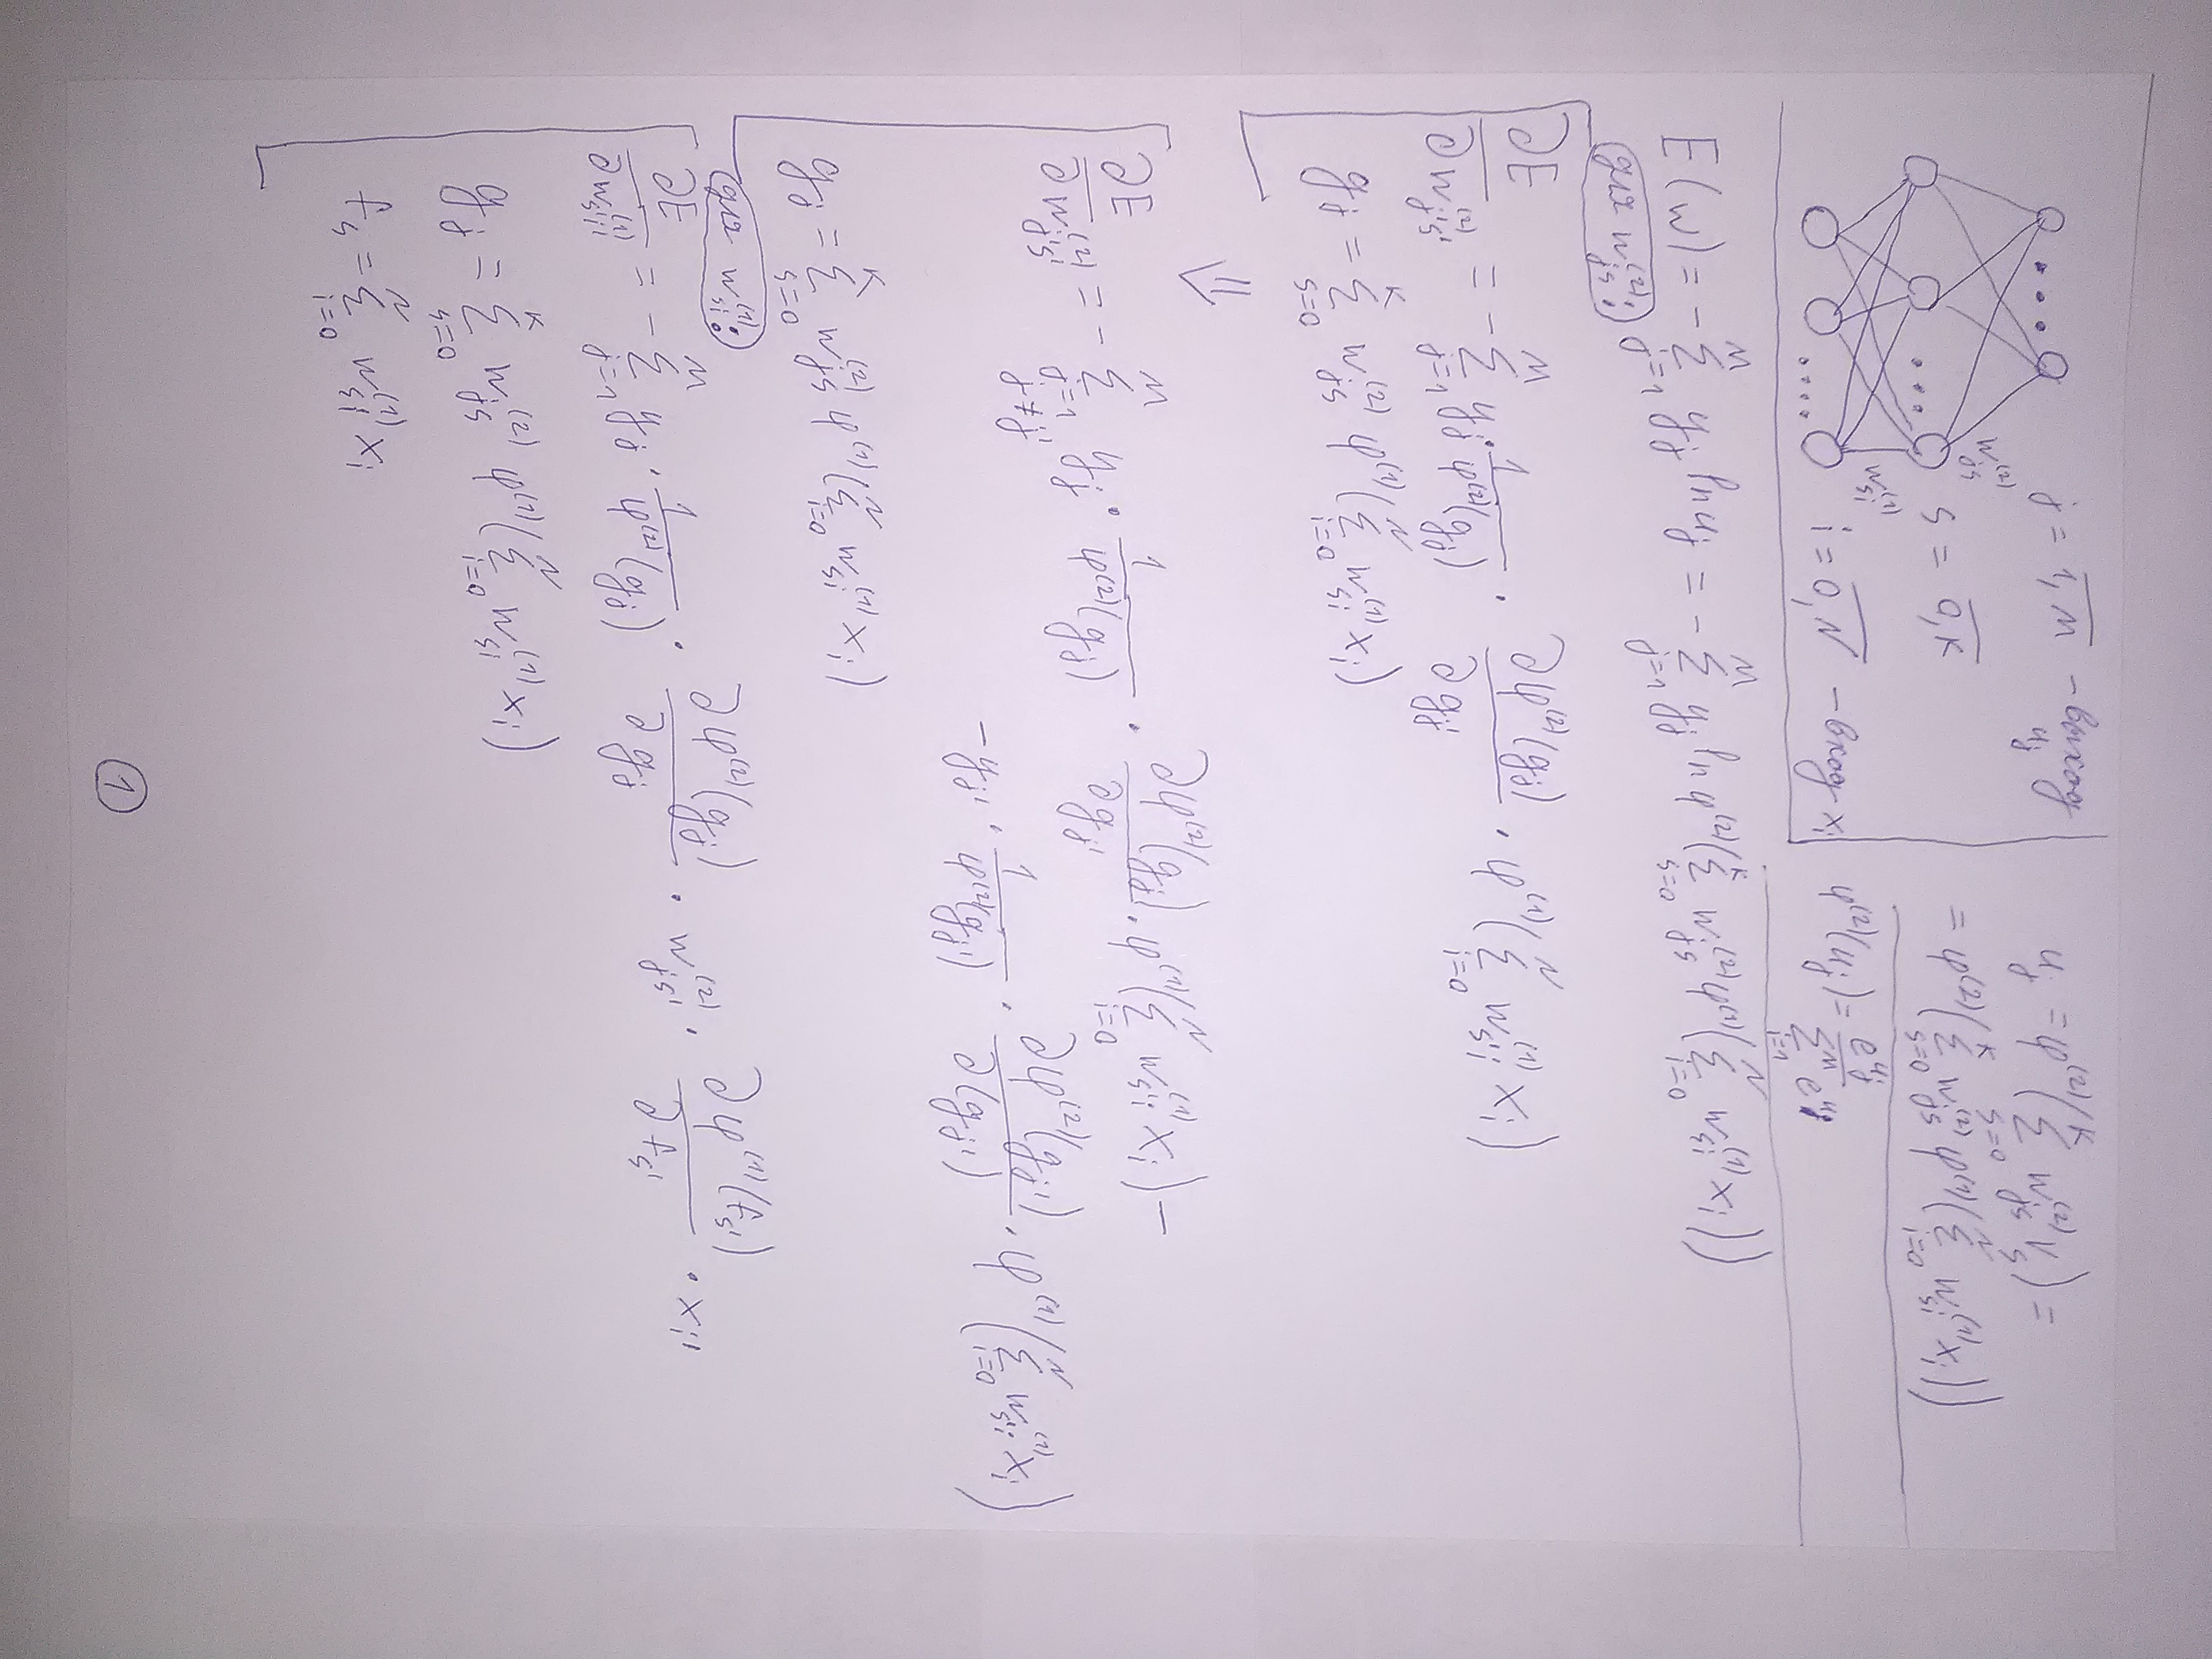 j = 1,M — выход u_j
w_{js}^{(2)}
s = 0,K
w_{si}^{(1)}
i = 0,N — вход x_i
u_j = φ^{(2)}(Σ_{s=0}^{K} w_{js}^{(2)} V_s) =
= φ^{(2)}(Σ_{s=0}^{K} w_{js}^{(2)} φ^{(1)}(Σ_{i=0}^{N} w_{si}^{(1)} x_i))
φ^{(2)}(u_j) = e^{u_j} / Σ_{i=1}^{M} e^{u_j}
E(w) = -Σ_{j=1}^{M} y_j ln u_j = -Σ_{j=1}^{M} y_j ln φ^{(2)}(Σ_{s=0}^{K} w_{js}^{(2)} φ^{(1)}(Σ_{i=0}^{N} w_{si}^{(1)} x_i))
для w_{js}^{(2)}:
∂E/∂w_{j's'}^{(2)} = -Σ_{j=1}^{M} y_j · 1/φ^{(2)}(g_j) · ∂φ^{(2)}(g_j)/∂g_{j'} · φ^{(1)}(Σ_{i=0}^{N} w_{s'i}^{(1)} x_i)
g_j = Σ_{s=0}^{K} w_{js}^{(2)} φ^{(1)}(Σ_{i=0}^{N} w_{si}^{(1)} x_i)
⇓
∂E/∂w_{j's'}^{(2)} = -Σ_{j=1, j≠j'}^{M} y_j · 1/φ^{(2)}(g_j) · ∂φ^{(2)}(g_j)/∂g_{j'} · φ^{(1)}(Σ_{i=0}^{N} w_{s'i}^{(1)} x_i) —
- y_{j'} · 1/φ^{(2)}(g_{j'}) · ∂φ^{(2)}(g_{j'})/∂(g_{j'}) · φ^{(1)}(Σ_{i=0}^{N} w_{s'i}^{(1)} x_i)
g_j = Σ_{s=0}^{K} w_{js}^{(2)} φ^{(1)}(Σ_{i=0}^{N} w_{si}^{(1)} x_i)
для w_{si}^{(1)}:
∂E/∂w_{s'i'}^{(1)} = -Σ_{j=1}^{M} y_j · 1/φ^{(2)}(g_j) · ∂φ^{(2)}(g_j)/∂g_j · w_{js'}^{(2)} · ∂φ^{(1)}(f_{s'})/∂f_{s'} · x_{i'}
g_j = Σ_{s=0}^{K} w_{js}^{(2)} φ^{(1)}(Σ_{i=0}^{N} w_{si}^{(1)} x_i)
f_s = Σ_{i=0}^{N} w_{si}^{(1)} x_i
1